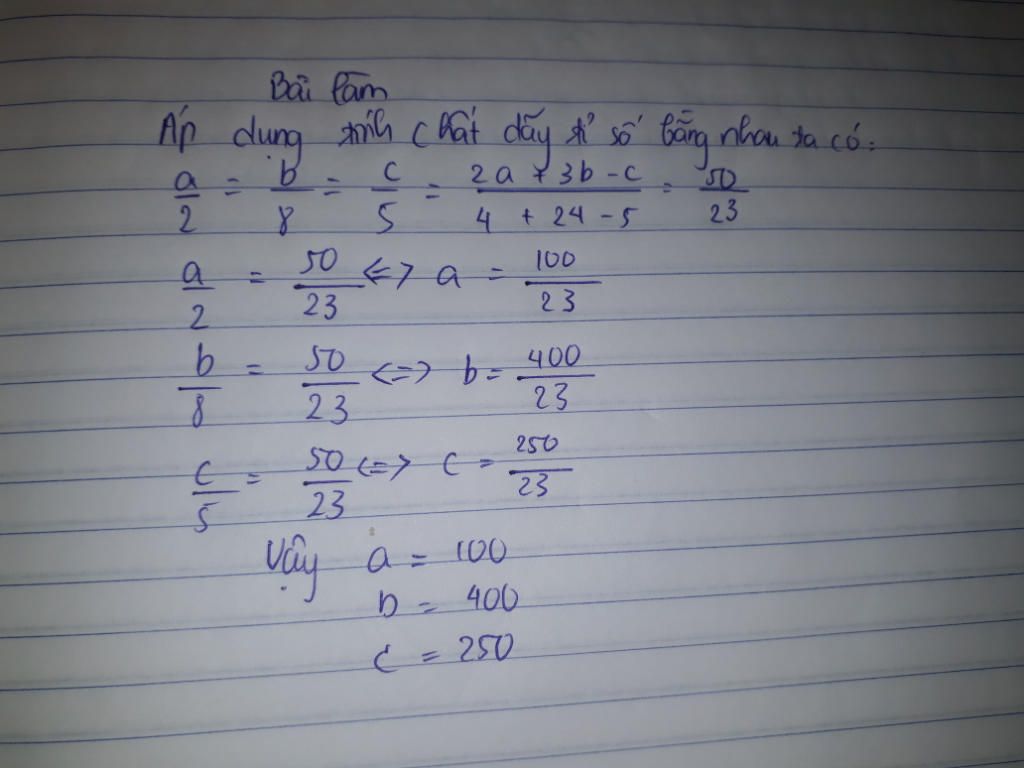 Bài làm
Áp dụng tính chất dãy tỉ số bằng nhau ta có:
a/2 = b/8 = c/5 = (2a + 3b - c)/(4 + 24 - 5) = 50/23
a/2 = 50/23 <=> a = 100/23
b/8 = 50/23 <=> b = 400/23
c/5 = 50/23 <=> c = 250/23
Vậy a = 100
b = 400
c = 250